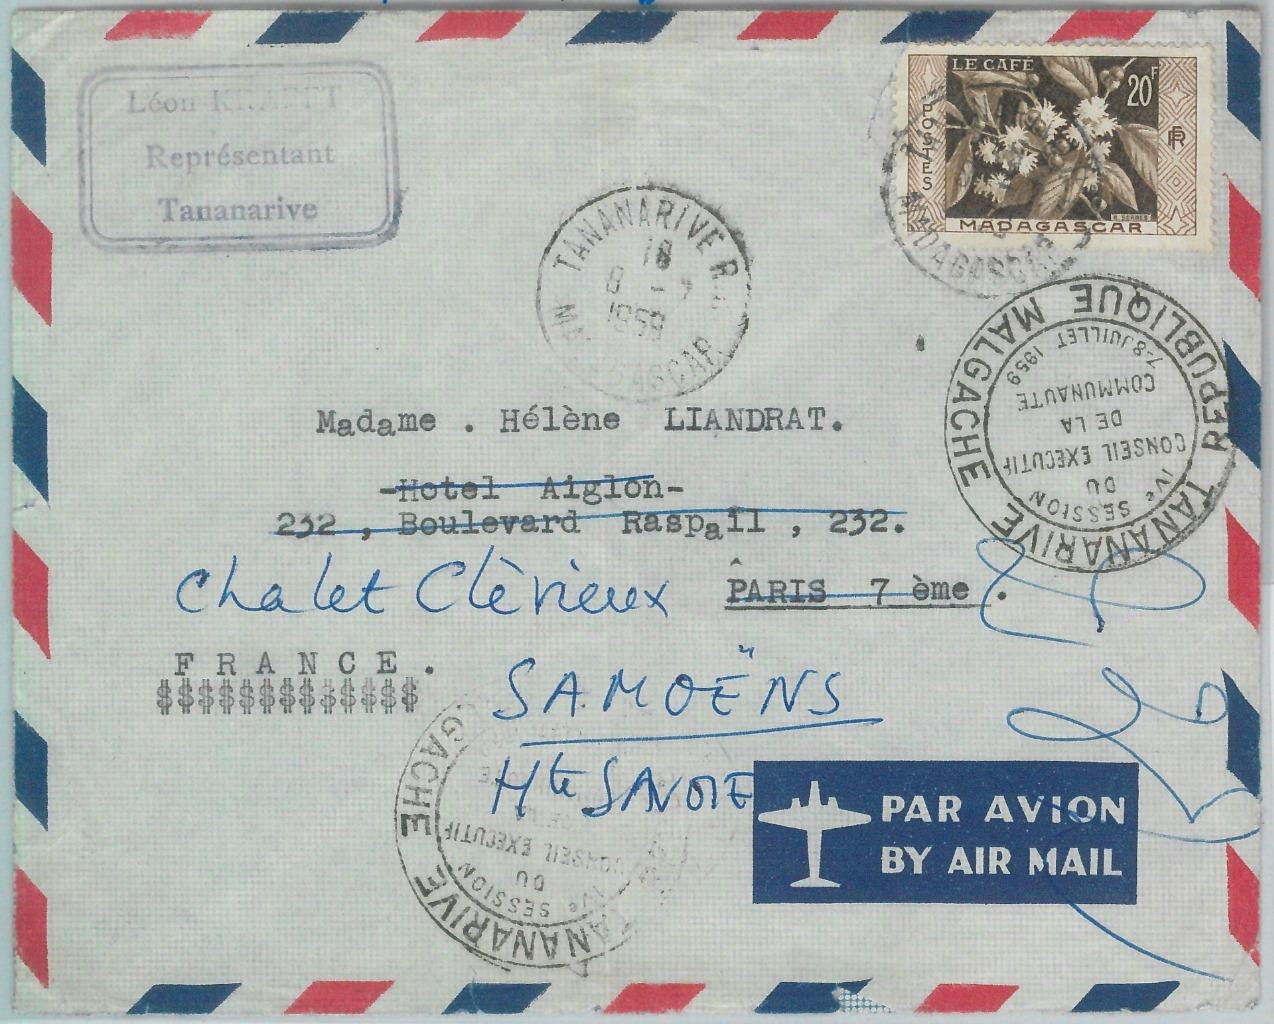 Léon
Représentant
Tananarive
LE CAFÉ
20F
POSTES
RF
MADAGASCAR
TANANARIVE R.P.
18
8 - 7
1959
MADAGASCAR
TANANARIVE REPUBLIQUE MALGACHE
IVe SESSION
DU
CONSEIL EXECUTIF
DE LA
COMMUNAUTE
7-8 JUILLET 1959
Madame . Hélène LIANDRAT.
-Hotel Aiglon-
232 , Boulevard Raspail , 232.
PARIS 7 ème .
Chalet Clèvieux
F R A N C E .
$$$$$$$$$$$$$
SAMOËNS
Hte SAVOIE
PAR AVION
BY AIR MAIL
TANANARIVE
GACHE
IVe SESSION
DU
CONSEIL EXECUTIF
DE LA